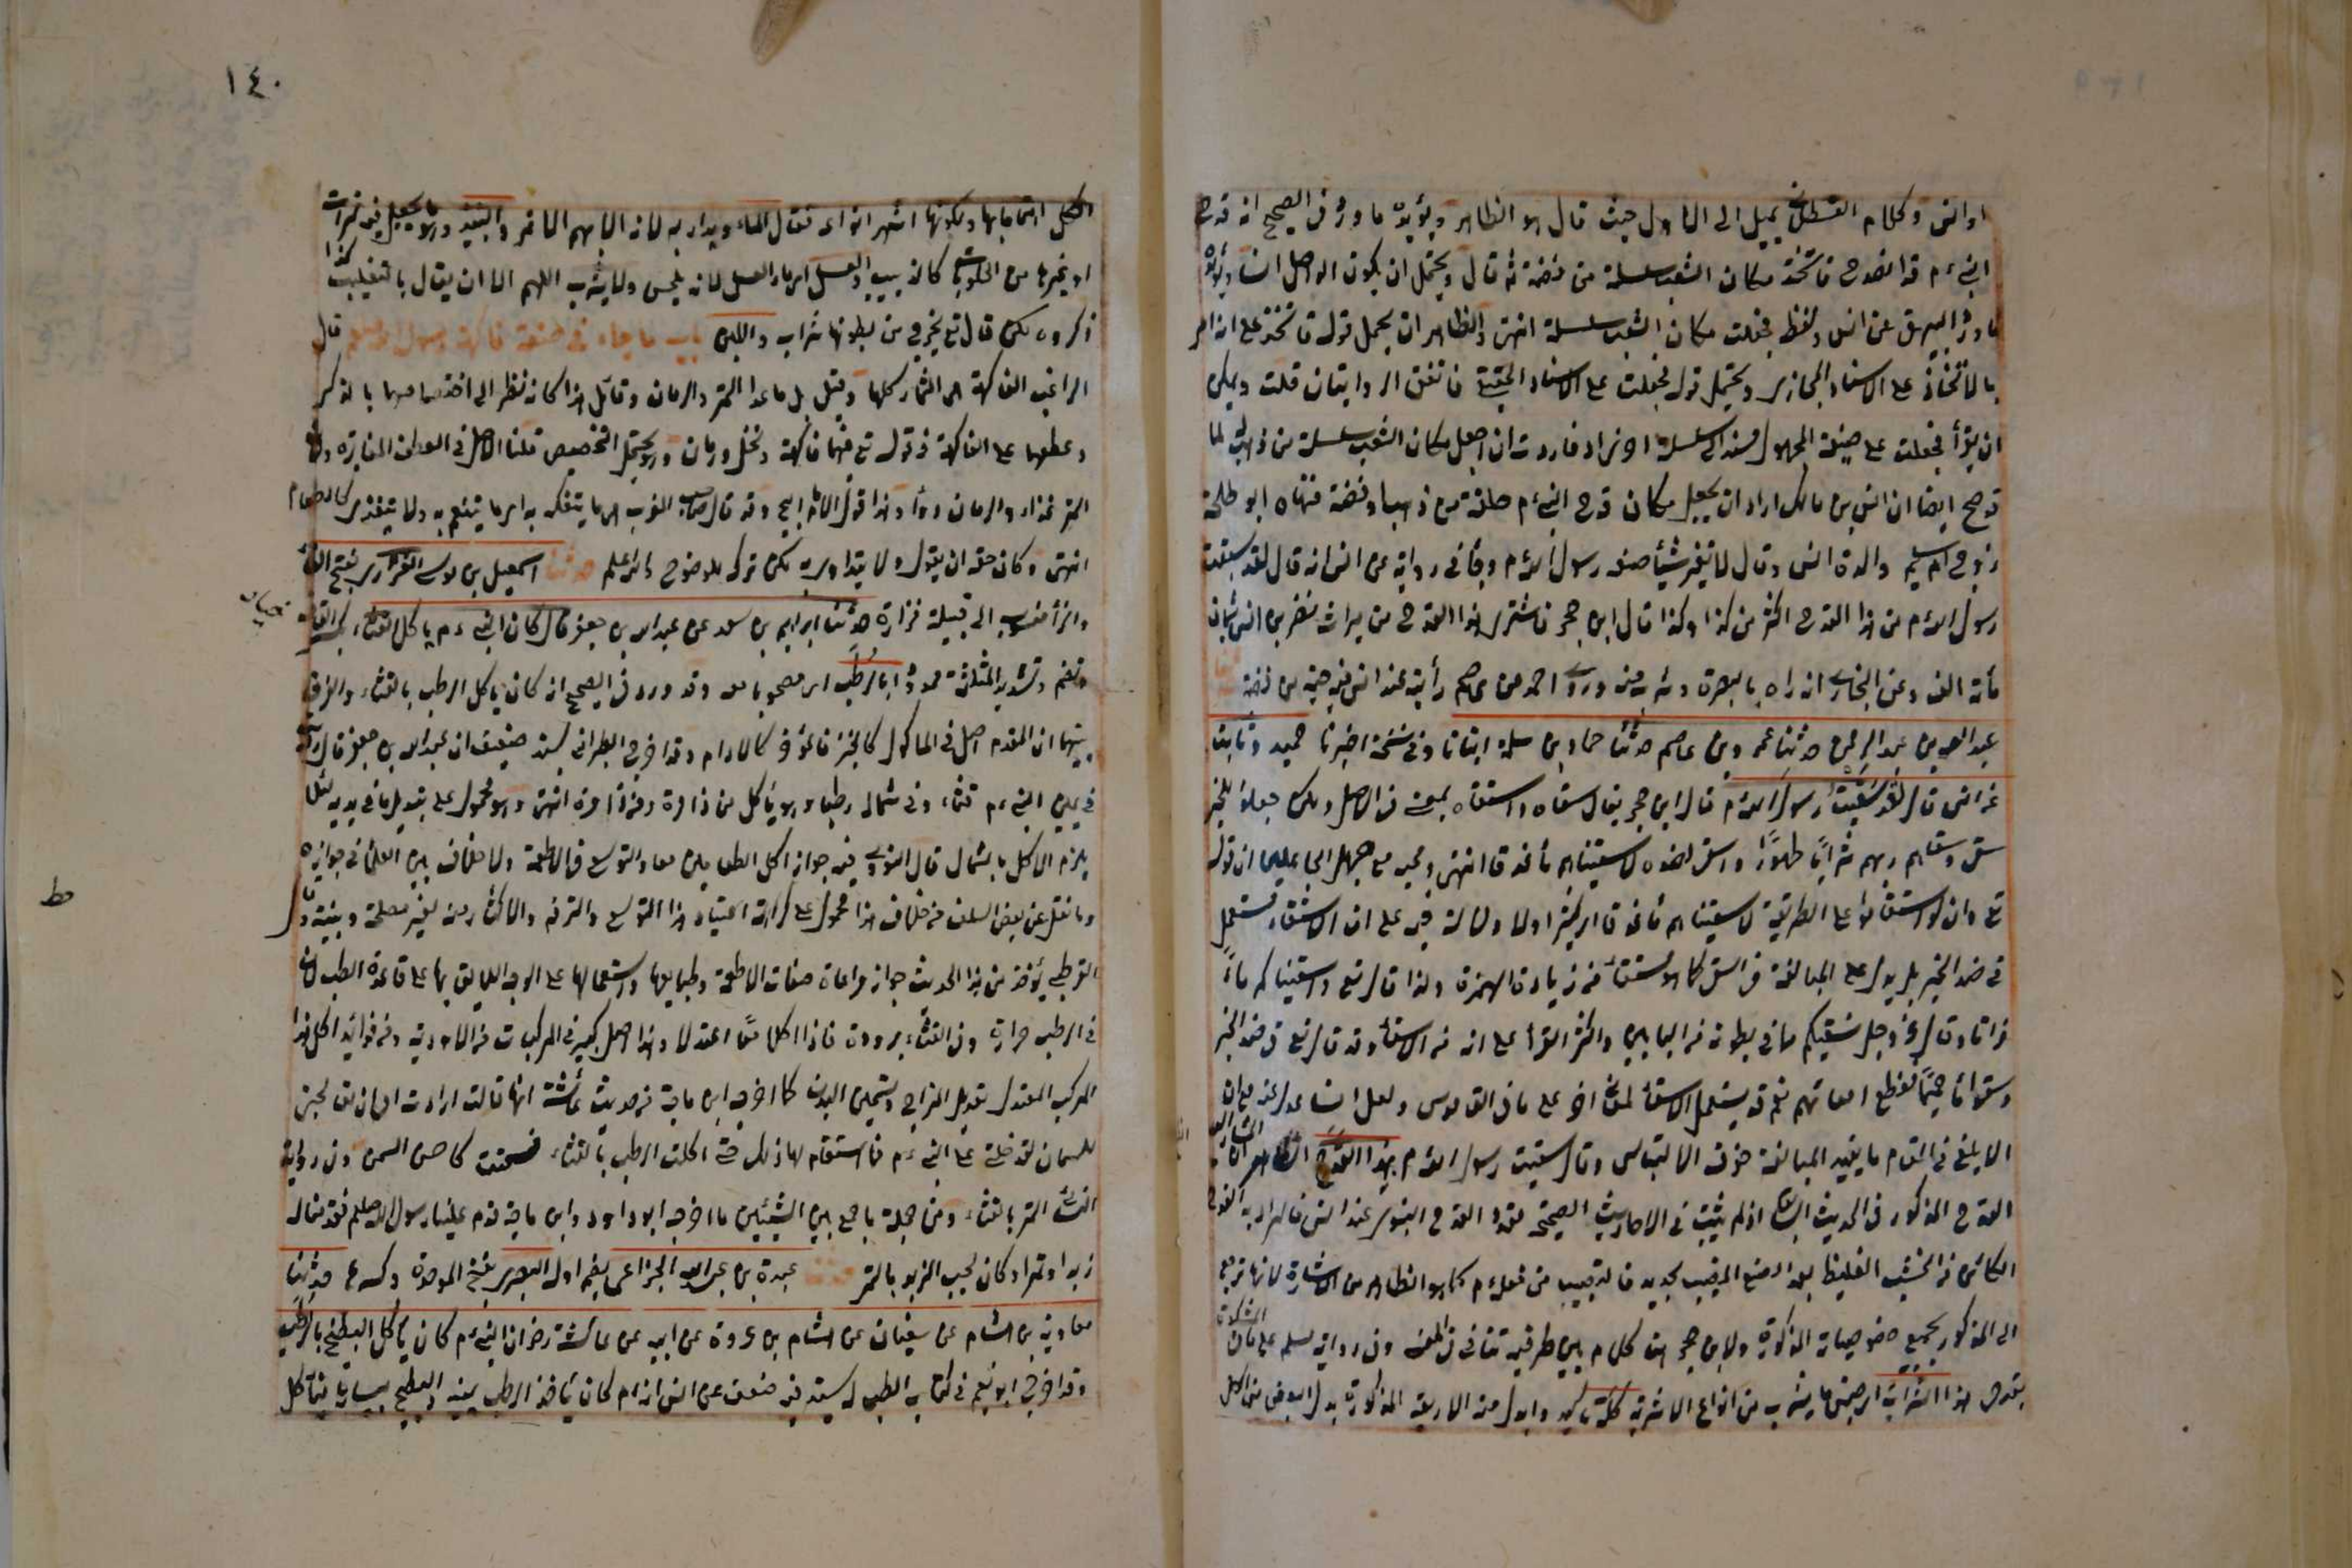 او انس وكلام العسقلاني يميل الى الاول حيث قال هو الظاهر ويؤيده ما ورد في الصحيح ان قدح
النبي ءم قد انصدح فاتخذ مكان الشعب سلسلة من فضة ثم قال ويحتمل ان يكون الواصل انسا ويؤيده
ما ورد البيهقي عن انس ولفظ فجعلت مكان الشعب سلسلة انتهى والظاهر ان يحمل قوله فاتخذ على انه امر
بالاتخاذ على الاسناد المجازي ويحتمل قوله فجعلت على الاسناد الحقيقي فاتفق الروايتان قلت ويمكن
ان يقرأ فجعلت على صيغة المجهول فاراد ان اجعل مكان الشعب سلسلة من ذهب لما
قد صح ايضا ان انس بن مالك اراد ان يجعل مكان قدح النبي ءم حلقة من ذهب او فضة فنهاه ابو طلحة
زوج ام سليم والدة انس وقال لا تغير شيئا صنعه رسول الله ءم وجاء في رواية عن انس انه قال لقد سقيت
رسول الله ءم من هذا القدح اكثر من كذا وكذا قال ابن حجر فاشترى هذا القدح من ميراث نضر بن انس بثمان
مأة الف وعن البخاري انه راه بالبصرة وشرب منه وروى احمد عن عاصم رأيت عند انس فيه ضبة من فضة
عبد الله بن عبد الرحمن حدثنا عمرو بن عاصم حدثنا حماد بن سلمة انبأنا وفي نسخة اخبرنا حميد وثابت
عن انس قال لقد سقيت رسول الله ءم قال ابن حجر يقال سقاه واسقاه بمعنى في الاصل ولكن جعلوا للخير
سقى وسقاهم ربهم شرابا طهورا واسقى لضده لاسقيناهم ماء غدقا انتهى وعجيب من جهل ان قوله
تع وان لو استقاموا على الطريقة لاسقيناهم ماء غدقا على ان الاسقاء مستعمل
في ضد الخير بل يدل على المبالغة في السقي كما هو مستفاد من زيادة الهمزة ولذا قال تع واسقيناكم ماء
فراتا وقال عز وجل نسقيكم مما في بطونه واكثر القراء على انه من الاسقاء وقد قال تع في ضد الخير
وسقوا ماء حميما فقطع امعائهم نعم قد يستعمل الاسقاء لمعنى اخر على ما في القاموس ولعل انسا عدل عنه مع ان
الابلغ في المقام ما يفيد المبالغة خوف الالتباس وقال سقيت رسول الله ءم بهذا القدح الظاهر ان المشار اليه
القدح المذكور في الحديث السابق اذ لم يثبت في الاحاديث الصحيحة تعدد القدح النبوي عند انس فالمراد به القدح
الكائن من الخشب الغليظ بعد الوضع المضبب بحديد فالتضبيب من فعله ءم كما هو الظاهر من الاشارة لانها ترجع
الى المذكور بجميع خصوصياته المذكورة ولابن حجر هنا كلام بين طرفيه تنافي في المعنى وفي رواية مسلم على ما في المشكوة
بقدحي هذا الشراب اي جنس ما يشرب من انواع الاشربة كله تأكيد وابدل منه الاربعة المذكورة بدل البعض من الكل
١٤٠
الكل اهتماما بها ولكونها اشهر انواعه فقال الماء وبدأ به لانه الاهم الاعم والنبيذ وهو ما يجعل فيه تمرات
او غيرها من الحلويات كالزبيب والعسل اي ماء العسل لانه يلحس ولا يشرب اللهم الا ان يقال بالتغليب كذا
ذكروه لكن قال تع يخرج من بطونها شراب واللبن باب ما جاء في صفة فاكهة رسول الله صلعم قال
الراغب الفاكهة هي الثمار كلها وقيل بل ما عدا التمر والرمان وقائل هذا كانه نظر الى اختصاصهما بالذكر
وعطفهما على الفاكهة في قوله تع فيهما فاكهة ونخل ورمان وهو يحتمل التخصيص قلنا الاصل في العطف المغايرة ولان
التمر غذاء والرمان دواء وهذا قول الامام الاعظم وقد قال صاحب المغرب هي ما يتفكه به اي ما يتنعم به ولا يتغذى كالطعام
انتهى وكان حقه ان يقول ولا يتداوى به لكن تركه للوضوح والله اعلم حدثنا اسمعيل بن موسى الفزاري بفتح الفاء
والزأ منسوب الى قبيلة فزارة حدثنا ابراهيم بن سعد عن عبد الله بن جعفر قال كان النبي ءم يأكل القثاء بكسر القاف
وتضم وتشديد المثلثة ممدودا بالرطب اي مصحوبا معه وقد ورد في الصحيح انه كان يأكل الرطب بالقثاء والفرق
بينهما ان المقدم اصل في المأكول كالخبز والمؤخر كالادام وقد اخرج الطبراني بسند ضعيف ان عبد الله بن جعفر قال رأيت
في يمين النبي ءم قثاء وفي شماله رطبا وهو يأكل من ذا مرة ومن ذا مرة انتهى وهو محمول على تبديل ما في يديه لئلا
يلزم الاكل بالشمال قال النووي فيه جواز اكل الطعامين معا والتوسع في الاطعمة ولا خلاف بين العلماء في جوازه
وما نقل عن بعض السلف من خلاف هذا محمول على كراهة اعتياد هذا التوسع والترفه والاكثار منه لغير مصلحة دينية وقال
القرطبي يؤخذ من هذا الحديث جواز مراعاة صفات الاطعمة وطبايعها واستعمالها على الوجه اللايق بها على قاعدة الطب لان
في الرطب حرارة وفي القثاء برودة فاذا اكلا معا اعتدلا وهذا اصل كبير في المركبات من الادوية ومن فوائد اكل هذا
المركب المعتدل تعديل المزاج وتسمين البدن كما اخرجه ابن ماجة من حديث عائشة انها قالت ارادت امي ان تعالجني
للسمن لتدخلني على النبي ءم فما استقام لها ذلك حتى اكلت الرطب بالقثاء فسمنت كاحسن السمن وفي رواية
النسائي التمر بالقثاء ومن جملة ما جمع بين الشيئين ما اخرجه ابو داود وابن ماجة قدم علينا رسول الله صلعم فقدمنا له
زبدا وتمرا وكان يحب الزبد بالتمر حدثنا عبدة بن عبد الله الخزاعي بضم اوله البصري بفتح الموحدة وكسرها حدثنا
معاوية بن هشام عن سفيان عن هشام بن عروة عن ابيه عن عائشة رض ان النبي ءم كان يأكل البطيخ بالرطب
وقد اخرج ابو نعيم في كتاب الطب له بسند فيه ضعف عن انس انه ءم كان يأخذ الرطب بيمينه والبطيخ بيساره فيأكل